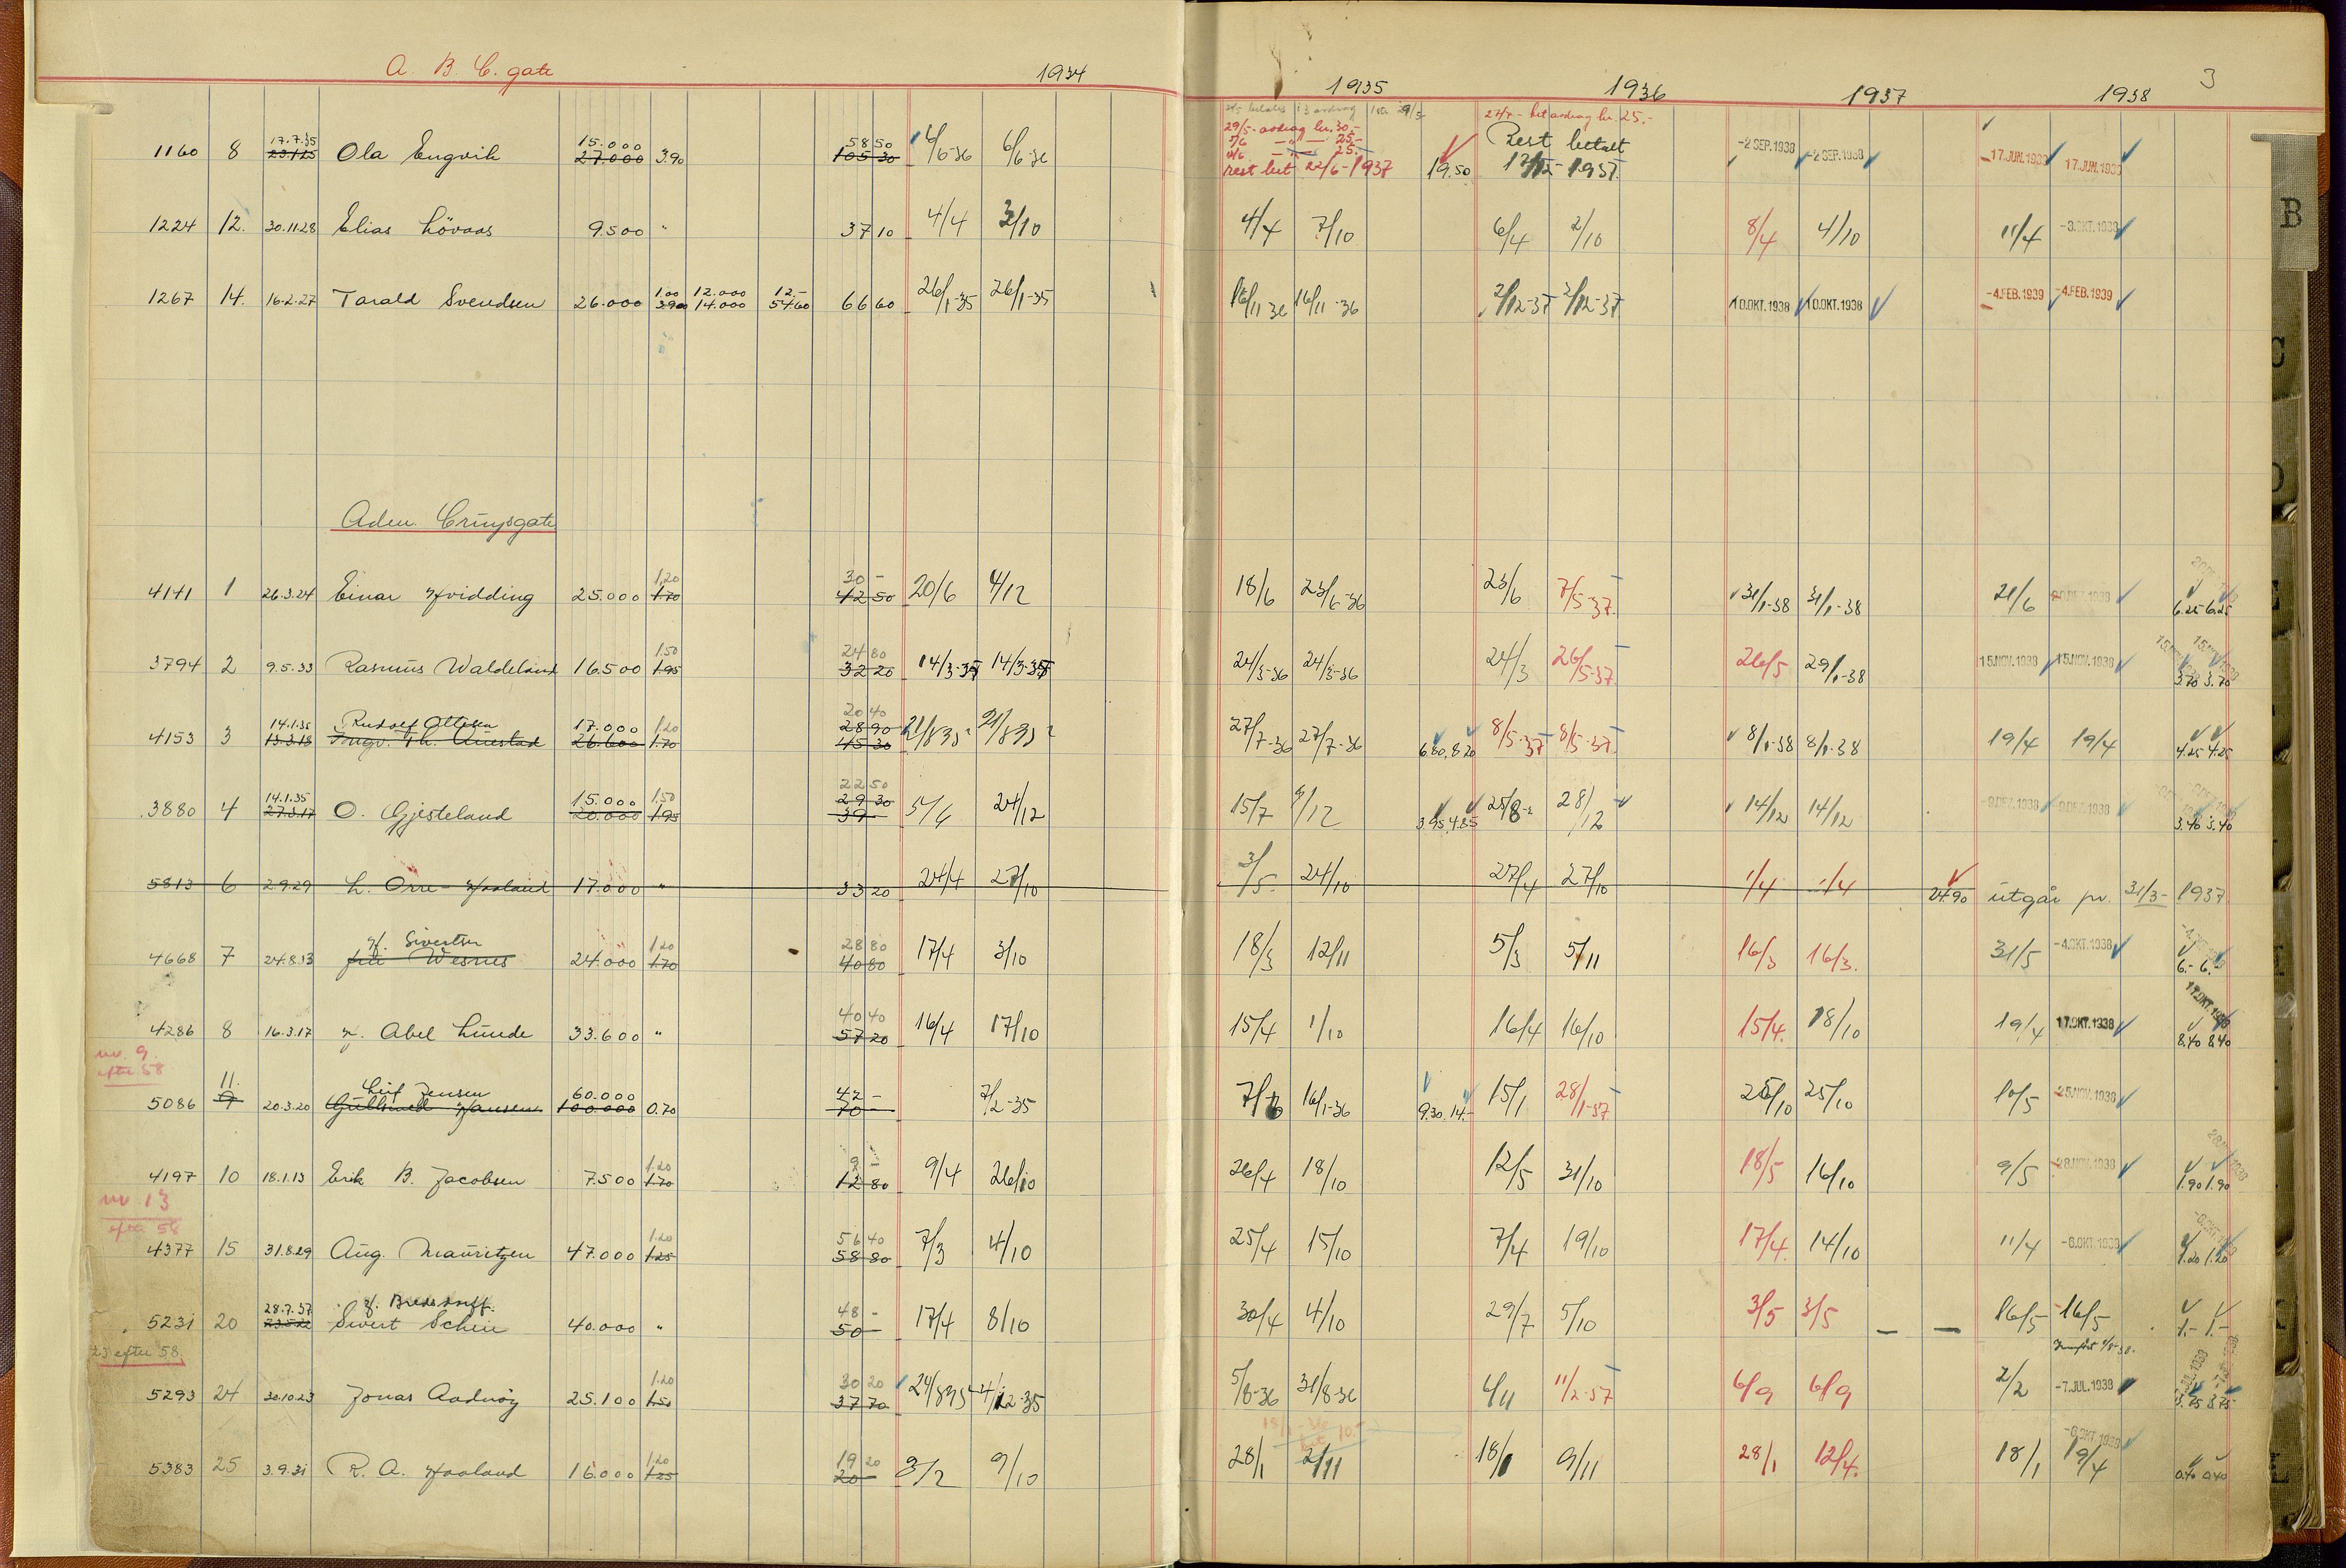 A. B. C. gate 1934 1935 1936 1937 1938 3
29/5 avdrag kr. 30.- 27/7 - bet avdrag kr. 25.-
17.7.35 15.000 58 50 Rest betalt
1160 8 23.1.25 Ola Engvik 27.000 3.90 105 30 4/6-36 6/6-36 rest bet 22/6-1937 19.50 17/12-1937. -2 SEP. 1938 -2 SEP. 1938 17. JUN. 1938 17. JUN. 1938
1224 12. 30.11.28 Elias Lövaas 9.500 " 37 10 4/4 3/10 4/4 7/10 6/4 2/10 8/4 4/10 11/4 -3. OKT. 1938
1.00 12.000 12.-
1267 14. 16.2.27 Tarald Svendsen 26.000 3.90 14.000 54.60 66 60 26/1-35 26/1-35 16/11 36 16/11-36 2/12-37 2/12-37 10. OKT. 1938 10. OKT. 1938 -4. FEB. 1939 -4. FEB. 1939
Adm. Cruysgate
1.20 30 -
4141 1 26.3.24 Einar Hvidding 25.000 1.70 42 50 20/6 4/12 18/6 23/6-36 23/6 7/5-37. 31/1-38 31/1-38 21/6 6.25 6.25
1.50 24 80
3794 2 9.5.33 Rasmus Waldeland 16.500 1.95 32 20 14/3-35 14/3-35 24/3-36 24/3-36 24/3 26/5-37 26/5 29/1-38 15. NOV. 1938 15. NOV. 1938 3.70 3.70
20 40
14.1.35 Rudolf Ottesen 17.000 1.20 28 90
4153 3 13.3.18 26.600 1.70 45 30 27/7-36 27/7-36 6.80 8.20 8/5-37 8/5-37. 8/1-38 8/1-38 19/4 19/4 4.25 4.25
22 50
14.1.35 15.000 1.50 29 30
3880 4 27.3.17 O. Gjesteland 20.000 1.95 39 - 24/12 15/7 9/12 3.95 4.85 28/12 14/12 14/12 -9. DEZ. 1938 9. DEZ. 1938 3.40 3.40
5813 6 2.9.29 L. Orre-Haaland 17.000 " 33 20 24/4 27/10 3/5. 24/10 27/4 27/10 1/4 1/4 24.90 utgår pr. 31/3- 1937
Sivertsen 1.20 28 80
4668 7 24.8.13 24.000 1.70 40 80 17/4 3/10 18/3 12/11 5/3 5/11 16/3 16/3. 31/5 -4. OKT. 1938 6.- 6.-
40 40
4286 8 16.3.17 Abel Lunde 33.600 " 57 20 16/4 17/10 15/4 1/10 16/4 16/10 15/4. 18/10 19/4 17. OKT. 1938 8.40 8.40
nr. 9.
efter 58
11. Leif Jensen 60.000 42 -
5086 9 20.3.20 Gullsmed Hansen 100.000 0.70 70 - 7/2-35 16/1-36 9.30 14.- 15/1 28/1-37 25/10 25/10 10/5 25. NOV. 1938
1.20 9 -
4197 10 18.1.13 Erik B. Jacobsen 7.500 1.70 12 80 9/4 26/10 26/4 18/10 12/5 31/10 18/5 16/10 9/5 28. NOV. 1938 1.90 1.90
nr 13
efter 58
1.20 56 40
4377 15 31.8.29 Aug. Mauritzen 47.000 1.25 58 80 7/3 4/10 25/4 15/10 7/4 19/10 17/4. 14/10 11/4 -6. OKT. 1938 1.20 1.20
28.7.37 48 -
5231 20 Sivert Schiu 40.000 " 50 - 17/4 8/10 30/4 4/10 29/7 5/10 3/5 3/5 16/5 16/5 1.- 1.-
23 efter 58.
1.20 30 20
5293 24 30.10.23 Jonas Aadnöy 25.100 1.50 37 70 5/8-36 31/8-36 6/11 11/2-37 6/9 6/9 2/2 -7. JUL. 1938 3.75 3.75
1.20 19 20
5383 25 3.9.31 R. A. Haaland 16.000 1.25 20 - 9/10 28/1 2/11 18/1 9/11 28/1 12/4. 18/1 19/4 -6. OKT. 1938 0.40 0.40
B